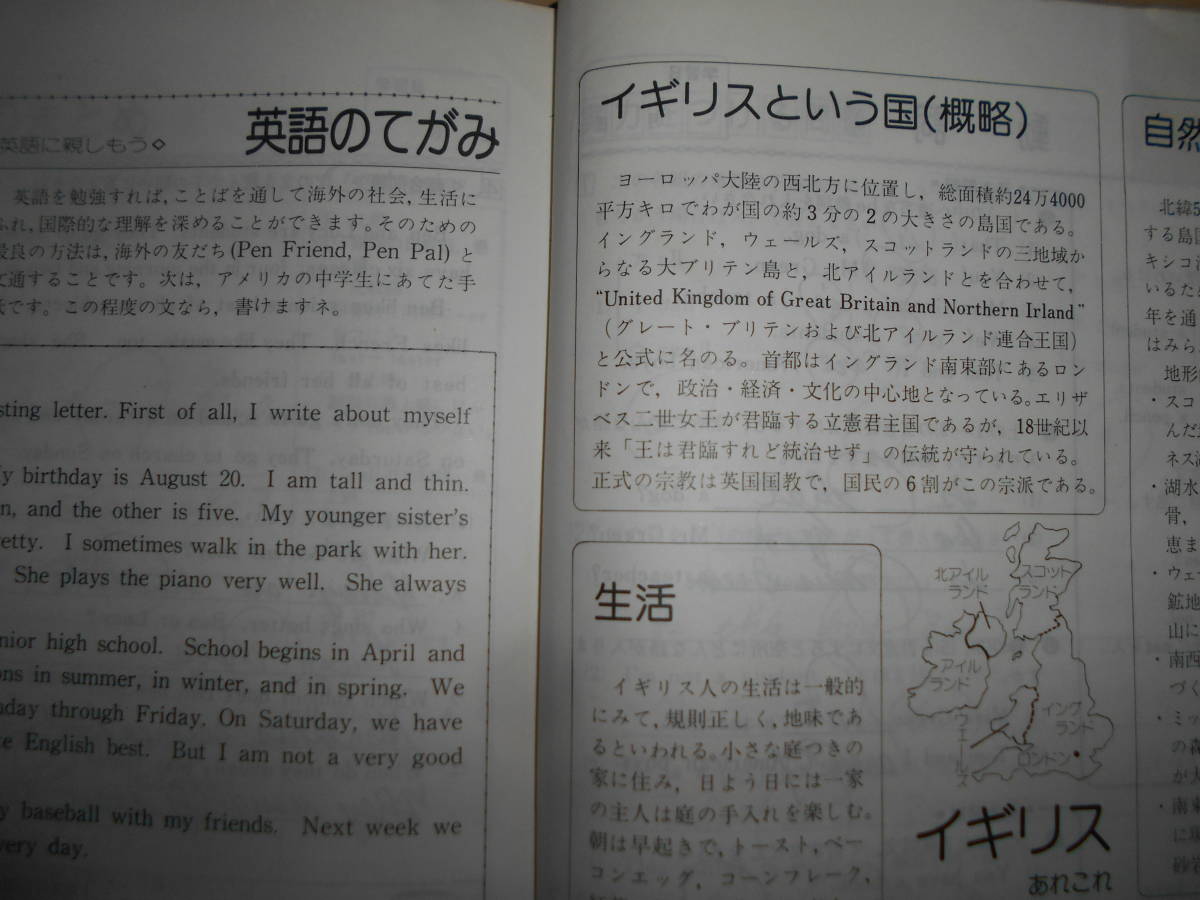 英語に親しもう◇
英語のてがみ
英語を勉強すれば，ことばを通して海外の社会，生活に
ふれ，国際的な理解を深めることができます。そのための
最良の方法は，海外の友だち(Pen Friend, Pen Pal) と
文通することです。次は，アメリカの中学生にあてた手
紙です。この程度の文なら，書けますネ。
sting letter. First of all, I write about myself
y birthday is August 20. I am tall and thin.
n, and the other is five. My younger sister's
etty. I sometimes walk in the park with her.
She plays the piano very well. She always
nior high school. School begins in April and
ons in summer, in winter, and in spring. We
nday through Friday. On Saturday, we have
e English best. But I am not a very good
y baseball with my friends. Next week we
very day.
イギリスという国(概略)
ヨーロッパ大陸の西北方に位置し，総面積約24万4000
平方キロでわが国の約3分の2の大きさの島国である。
イングランド，ウェールズ，スコットランドの三地域か
らなる大ブリテン島と，北アイルランドとを合わせて，
“United Kingdom of Great Britain and Northern Irland”
（グレート・ブリテンおよび北アイルランド連合王国）
と公式に名のる。首都はイングランド南東部にあるロン
ドンで，政治・経済・文化の中心地となっている。エリザ
ベス二世女王が君臨する立憲君主国であるが，18世紀以
来「王は君臨すれど統治せず」の伝統が守られている。
正式の宗教は英国国教で，国民の6割がこの宗派である。
生活
イギリス人の生活は一般的
にみて，規則正しく，地味であ
るといわれる。小さな庭つきの
家に住み，日よう日には一家
の主人は庭の手入れを楽しむ。
朝は早起きで，トースト，ベー
コンエッグ，コーンフレーク，
北アイル
ランド
スコット
ランド
アイル
ランド
イング
ランド
ウェールズ
ロンドン
イギリス
あれこれ
自然
北緯5
する島国
キシコ湾
いるため
年を通
はみら
地形的
・スコ
んだ
ネス湖
・湖水
骨，
恵ま
・ウェー
鉱地
山に
・南西
づく
・ミッ
の森
が人
・南東
に
砂岩